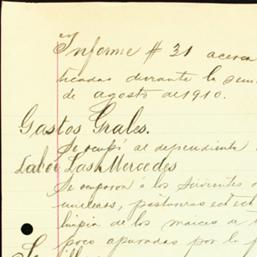 Informe # 31 acerca
ticadas durante la sem
de agosto de 1910.
Gastos Grales.
Se ocupó al dependiente
Labor Las Mercedes
Se ocuparon a los sirvientes
limpia de los maices
poco apuradas por la